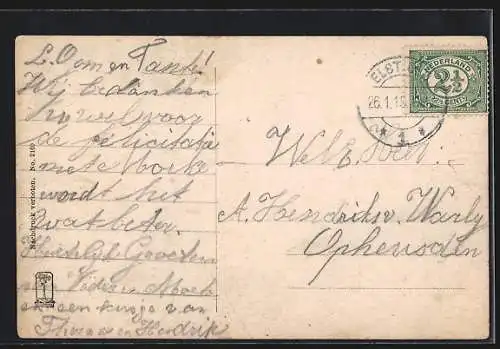 L. Oom en Tante!
Wij bedanken
U wel voor
de felicitatie
met
wordt het
wat beter.
Hartelijk Groeten
van Vader en Moeder
en een kusje van
en Hendrik
Nachdruck verboten. No. 2160
ELST
26.1.16
1
NEDERLAND
2½
CENT
Wel. Heer
A. Hendriksv. Warly
Ophensden